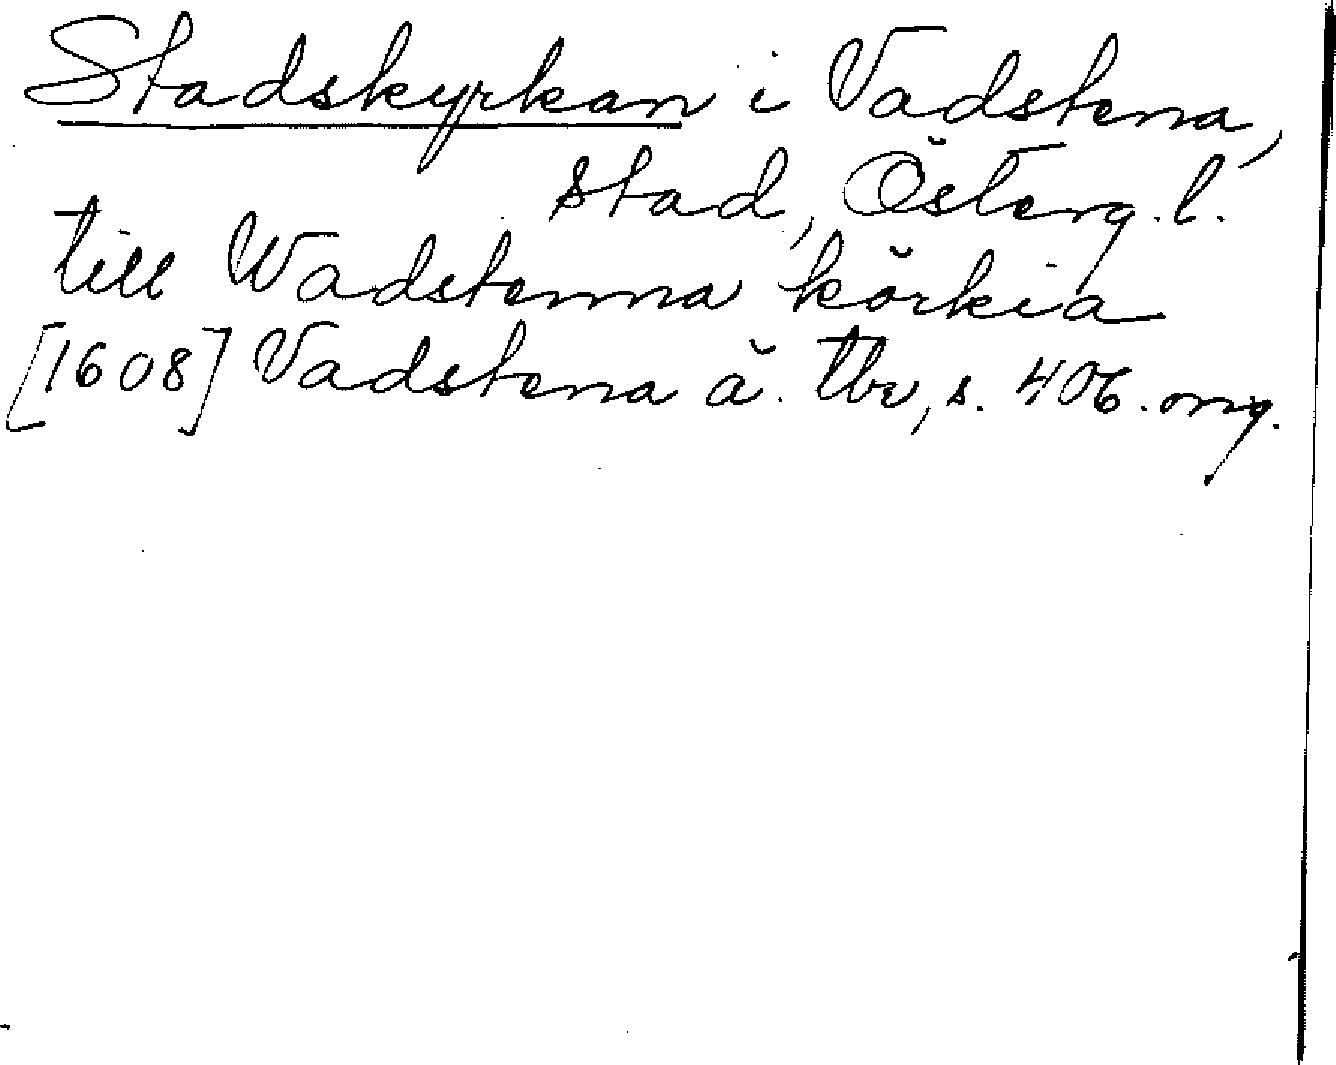 Stadskyrkan i Vadstena,
stad, Österg. l.
till Wadstenna körkia
[1608] Vadstena ä. tbr, s. 406. orig.